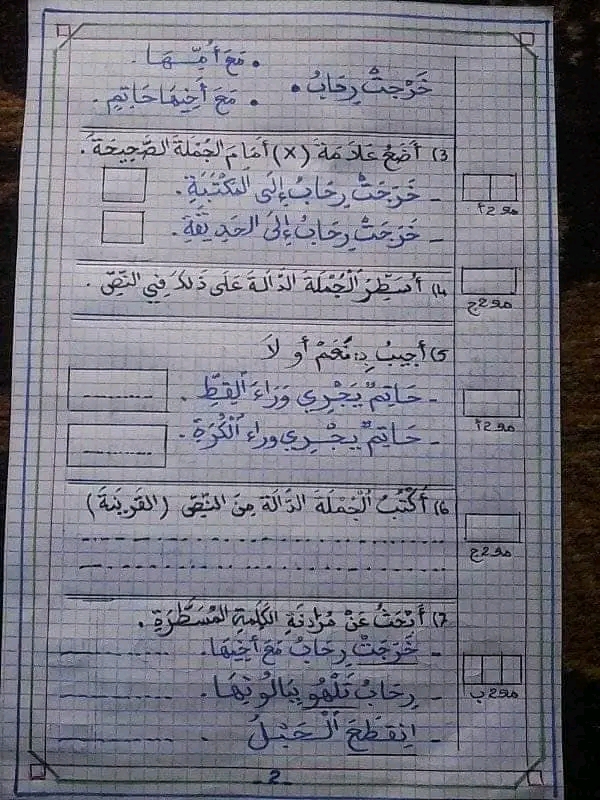 • مَعَ أُمِّهَا.
خَرَجَتْ رِحَابُ •
• مَعَ أَخِيهَا حَاتِمٍ.
3) أَضَعُ عَلَامَةَ (x) أَمَامَ الجُمْلَةَ الصَّحِيحَةَ.
- خَرَجَتْ رِحَابُ إِلَى المَكْتَبَةِ.
مع2أ
- خَرَجَتْ رِحَابُ إِلَى الحَدِيقَةِ.
4) أُسَطِّرُ الْجُمْلَةَ الدَّالَةَ عَلَى ذَلِكَ فِي النَّصِّ.
مع2ج
5) أُجِيبُ بِـ: نَعَمْ أَو لَا
- حَاتِمٌ يَجْرِي وَرَاءَ القِطِّ.
مع2أ
- حَاتِمٌ يَجْرِي وراء الْكُرَةِ.
6) أَكْتُبُ الْجُمْلَةَ الدَّالَةَ مِنَ النَّصِّ (القَرِينَةَ)
مع2ج
7) أَبْحَثُ عَنْ مُرَادِفَةِ الكَلِمَةِ المُسَطَّرَةِ.
- خَرَجَتْ رِحَابُ مَعَ أَخِيهَا.
- رِحَابُ تَلْهُو بِبَالُونِهَا.
مع2ب
- اِنْقَطَعَ الْحَبْلُ.
- 2 -